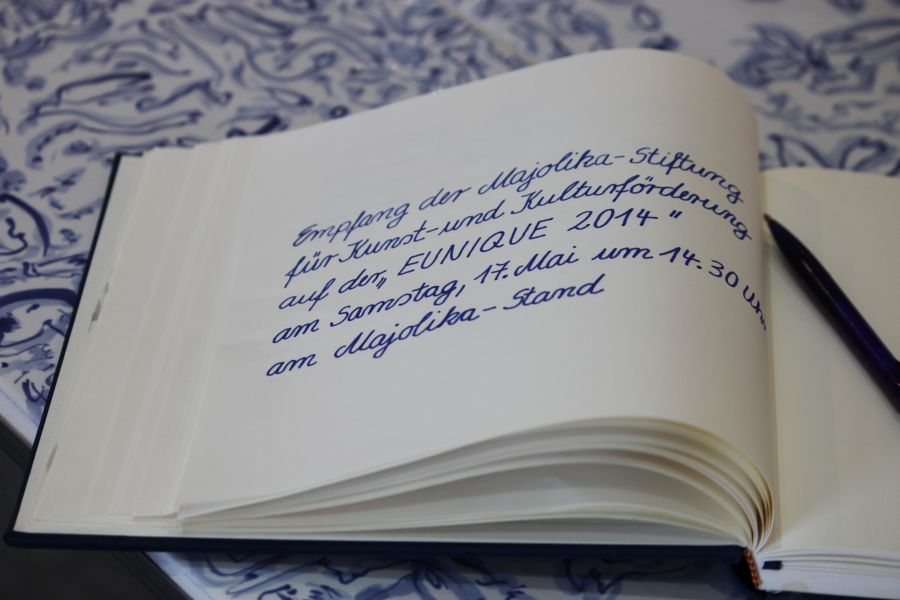 Empfang der Majolika-Stiftung
für Kunst-und Kulturförderung
auf der „EUNIQUE 2014"
am Samstag, 17. Mai um 14.30 Uhr
am Majolika-Stand